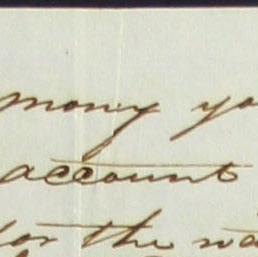 mony yo
account
for the wa